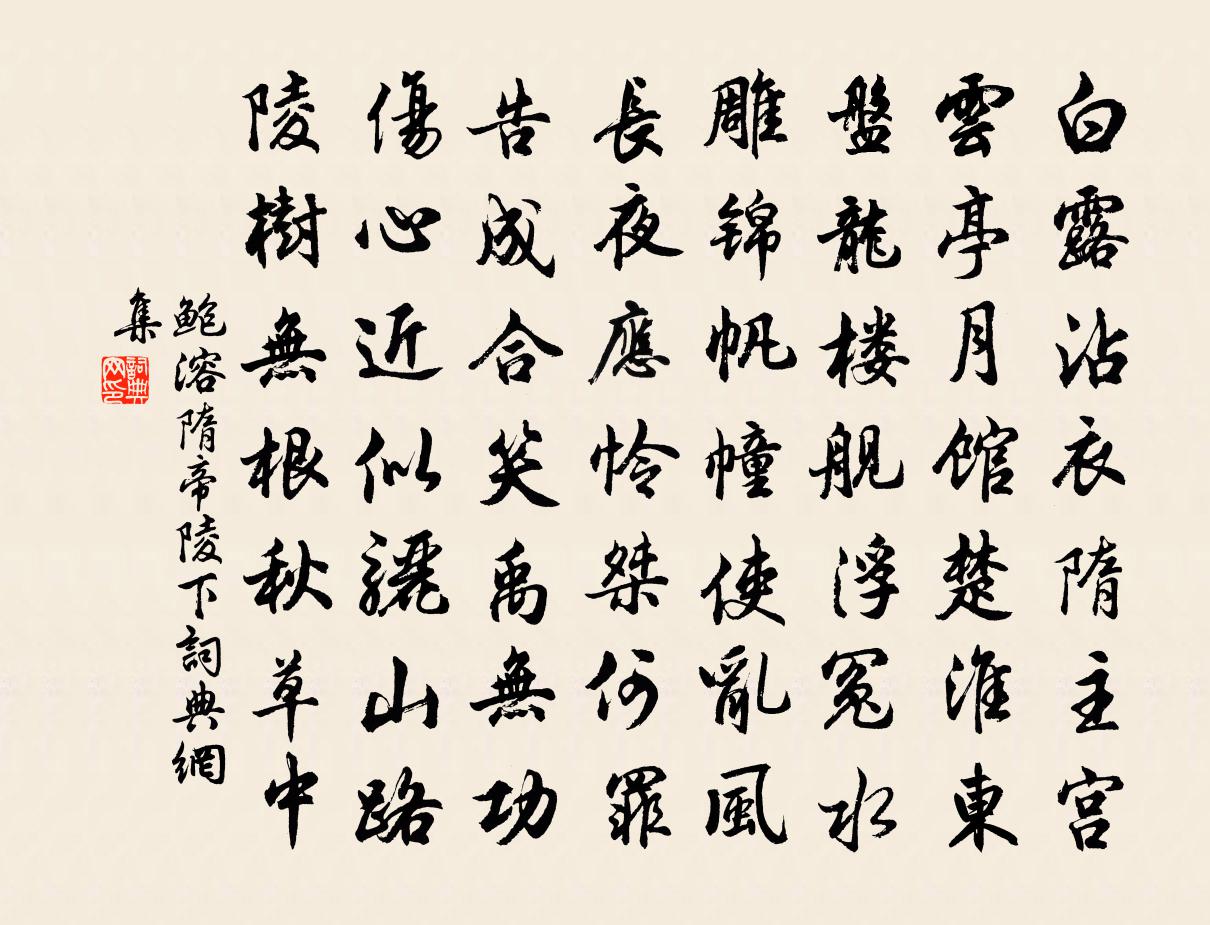 白露沾衣隋主宮
雲亭月館楚淮東
盤龍楼舰浮冤水
雕锦帆幢使亂風
長夜應怜桀何罪
告成合笑禹無功
傷心近似驪山路
陵樹無根秋草中
鲍溶隋帝陵下詞典網
集
詞典网印